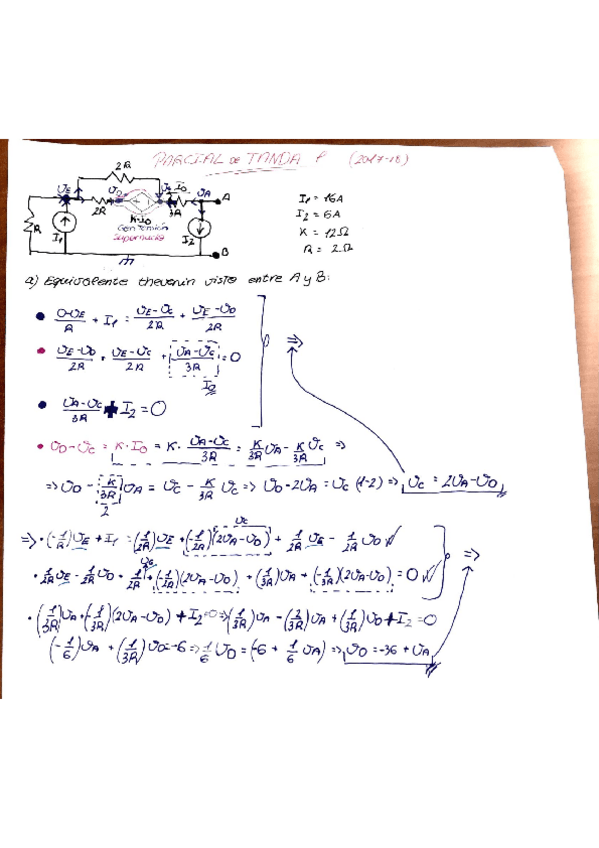 PARCIAL DE TANDA 1 (2017-18)
2R
υE υD υC I0 υA A
2R + - 3R
R I1 K·I0 I2
Gen tensión
Supernudo
B
I1 = 16A
I2 = 6A
K = 12Ω
R = 2Ω
a) Equivalente thevenin visto entre A y B:
• (0-υE)/R + I1 = (υE-υC)/2R + (υE-υD)/2R
• (υE-υD)/2R + (υE-υC)/2R + (υA-υC)/3R = 0 ⇒
I0
• (υA-υC)/3R + I2 = 0
• υD-υC = K·I0 = K·(υA-υC)/3R = K/3R υA - K/3R υC ⇒
⇒ υD - K/3R υA = υC - K/3R υC ⇒ υD - 2υA = υC (1-2) ⇒ υC = 2υA-υD
2
υC
⇒ • (-1/R)υE + I1 = (1/2R)υE + (-1/2R)(2υA-υD) + 1/2R υE - 1/2R υD ✓
υE
• 1/2R υE - 1/2R υD + 1/2R + (-1/2R)(2υA-υD) + (1/3R)υA + (-1/3R)(2υA-υD) = 0 ✓ ⇒
• (1/3R)υA + (-1/3R)(2υA-υD) + I2=0 ⇒ (1/3R)υA - (2/3R)υA + (1/3R)υD + I2 = 0
(-1/6)υA + (1/3R)υD=-6 ⇒ 1/6 υD = (-6 + 1/6 υA) ⇒ υD = -36 + υA